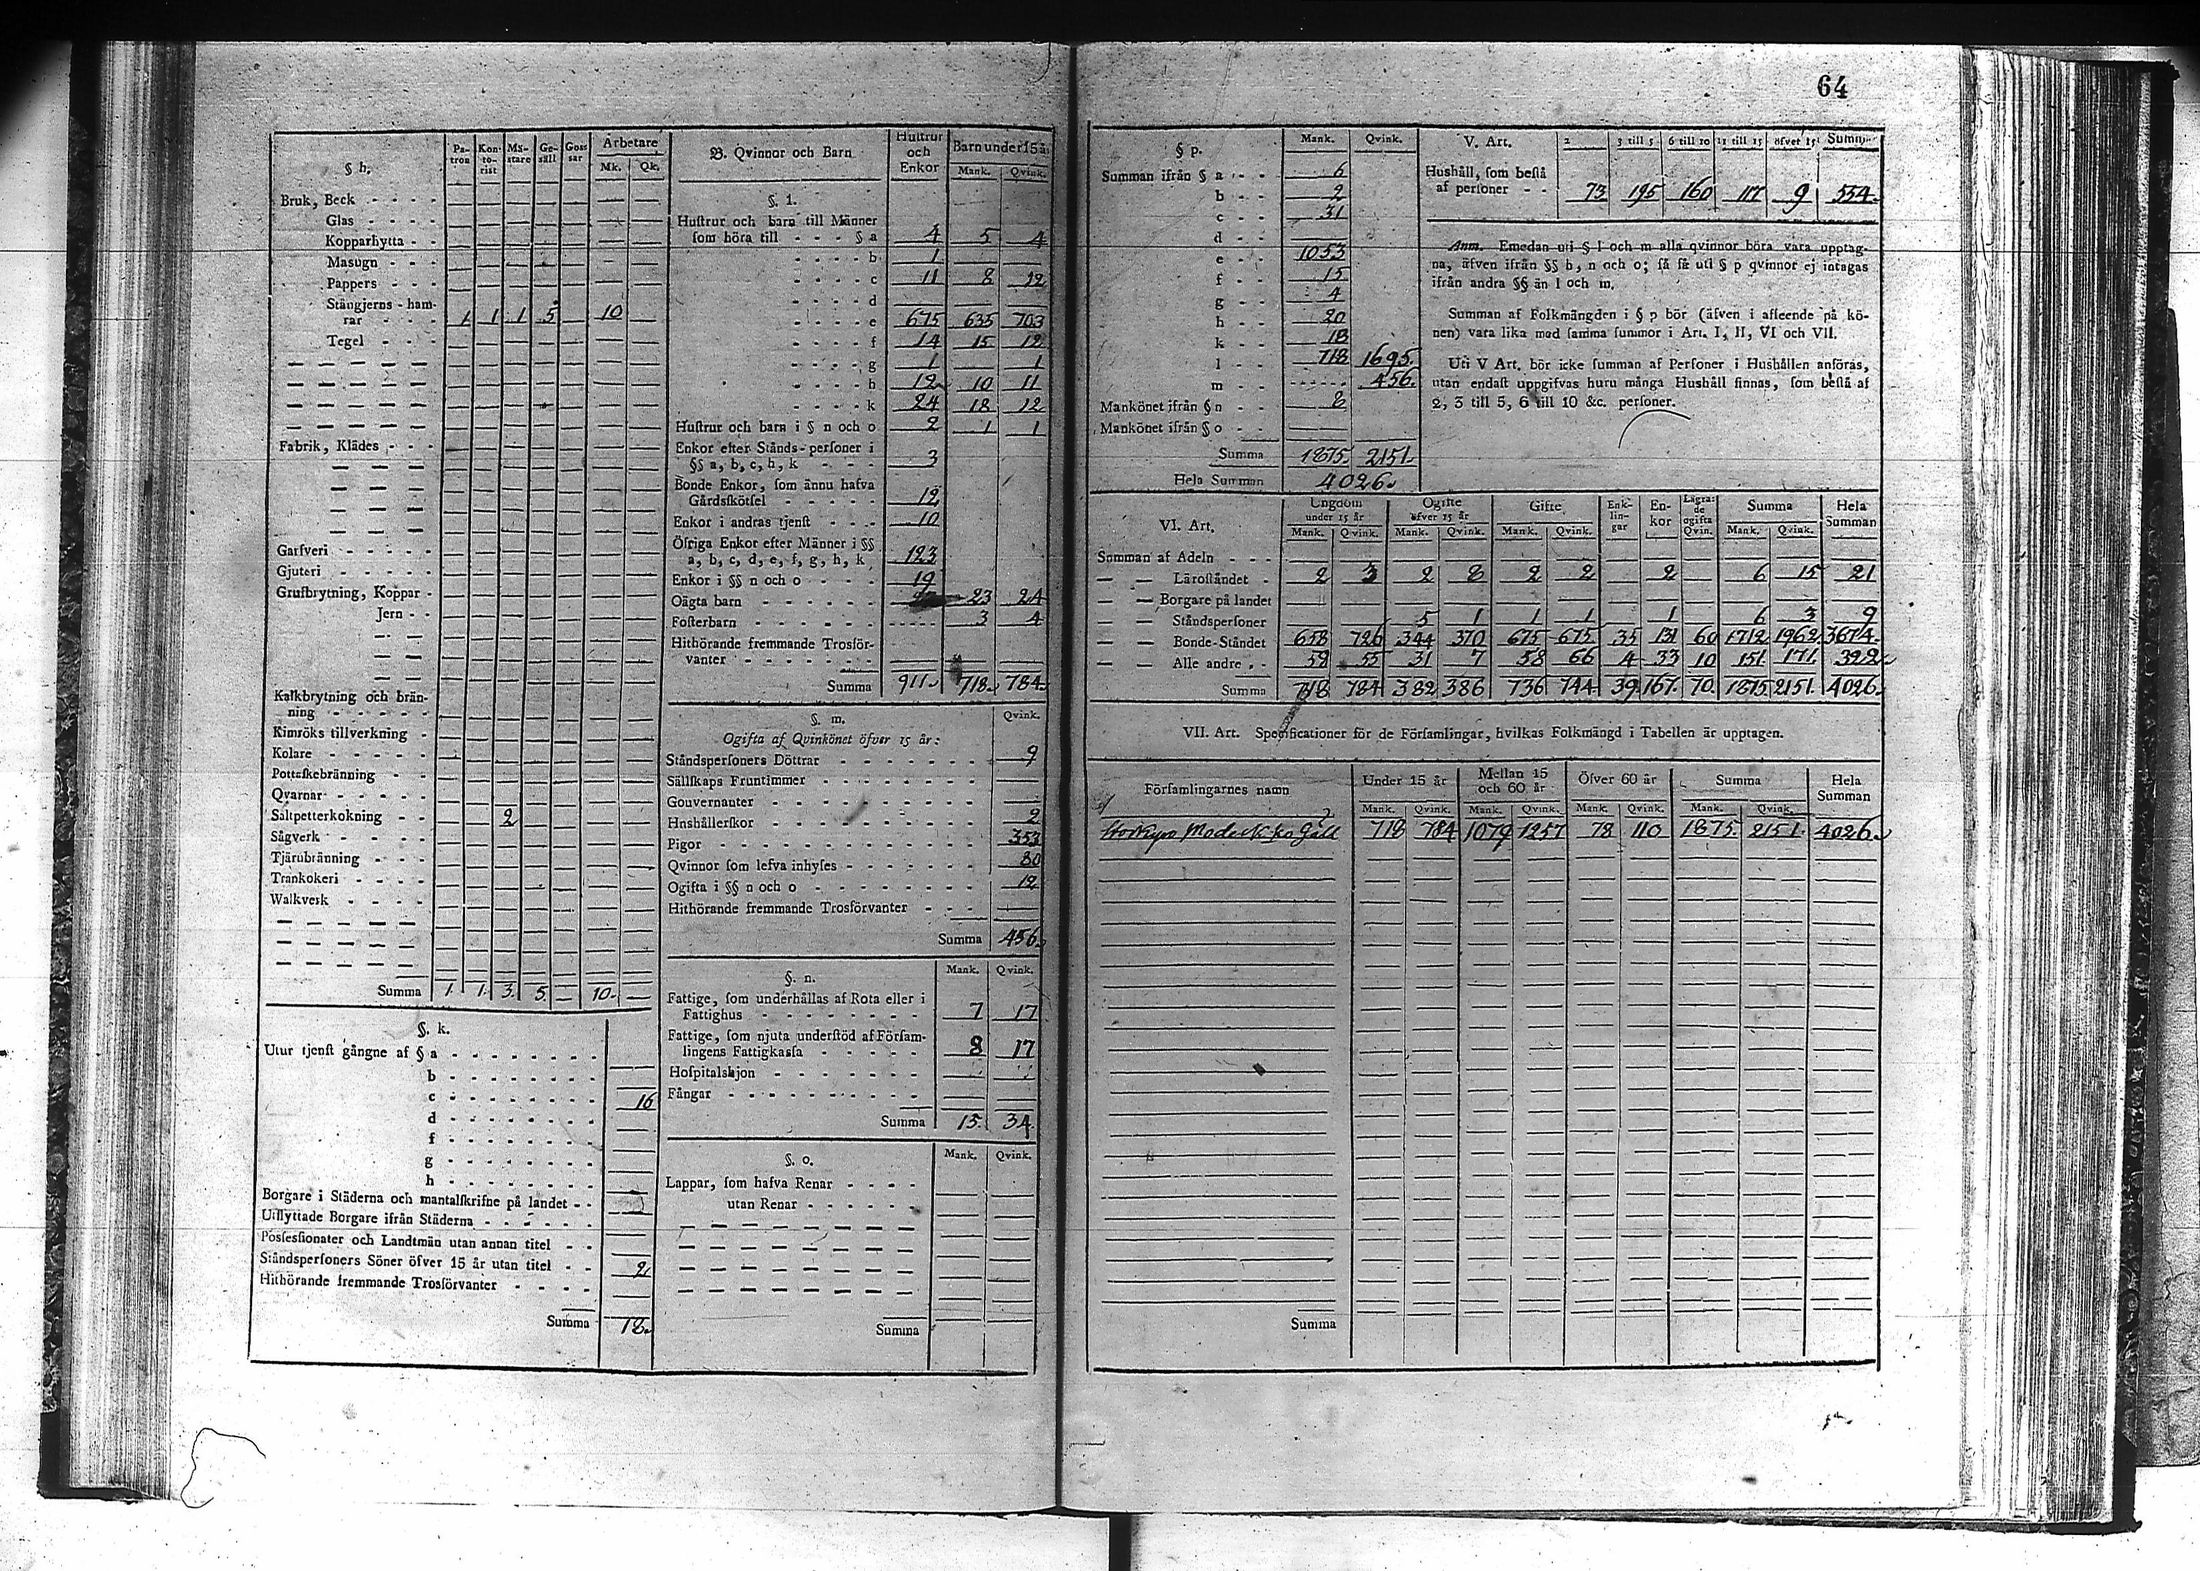 64
§ h. Patron Kontorist Mästare Gesäll Gossar Arbetare
Mk. Qk.
Bruk, Beck - - - -
Glas - - - -
Kopparhytta - -
Masugn - - -
Pappers - - -
Stångjerns-ham-
rar - - - 1 1 1 5 10
Tegel - - -
Fabrik, Klädes - - -
Garfveri - - - - -
Gjuteri - - - - -
Grufbrytning, Koppar -
Jern - -
Kalkbrytning och brän-
ning - - - - - -
Kimröks tillverkning -
Kolare - - - - -
Pottaskebränning - -
Qvarnar - - - - -
Saltpetterkokning - - 2
Sågverk - - - - -
Tjärubränning - - -
Trankokeri - - - -
Walkverk - - - -
Summa 1. 1. 3. 5. — 10. —
§. k.
Utur tjenst gångne af § a - - - - - - - -
b - - - - - - - -
c - - - - - - - - 16
d - - - - - - - -
f - - - - - - - -
g - - - - - - - -
h - - - - - - - -
Borgare i Städerna och mantalskrifne på landet - -
Utflyttade Borgare ifrån Städerna - - - - - -
Possessionater och Landtmän utan annan titel - -
Ståndspersoners Söner öfver 15 år utan titel - - 2
Hithörande fremmande Trosförvanter - - - -
Summa 18.
B. Qvinnor och Barn Hustrur och Enkor Barn under 15 år
Mank. Qvink.
§. l.
Hustrur och barn till Männer
som höra till - - - § a 4 5 4
- - - - b 1
- - - - c 11 8 12
- - - - d
- - - - e 675 635 703
- - - - f 14 15 12
- - - - g 1 1
- - - - h 12 10 11
- - - - k 24 18 12
Hustrur och barn i § n och o 2 1 1
Enkor efter Stånds-personer i
§§ a, b, c, h, k - - - 3
Bonde Enkor, som ännu hafva
Gårdsskötsel - - - - - 12
Enkor i andras tjenst - - - 10
Öfriga Enkor efter Männer i §§
a, b, c, d, e, f, g, h, k 123
Enkor i §§ n och o - - - - 19
Oägta barn - - - - - - 23 24
Fosterbarn - - - - - - 3 4
Hithörande fremmande Trosför-
vanter - - - - - - -
Summa 911. 718. 784.
§. m. Qvink.
Ogifta af Qvinkönet öfver 15 år:
Ståndspersoners Döttrar - - - - - - - 9
Sällskaps Fruntimmer - - - - - - -
Gouvernanter - - - - - - - - -
Hushållerskor - - - - - - - - - 2
Pigor - - - - - - - - - - 353
Qvinnor som lefva inhyses - - - - - - 80
Ogifta i §§ n och o - - - - - - - - 12
Hithörande fremmande Trosförvanter - - -
Summa 456.
§. n. Mank. Qvink.
Fattige, som underhållas af Rota eller i
Fattighus - - - - - - - - 7 17
Fattige, som njuta understöd af Försam-
lingens Fattigkassa - - - - - 8 17
Hospitalshjon - - - - - - - -
Fångar - - - - - - - - - -
Summa 15. 34.
§. o. Mank. Qvink.
Lappar, som hafva Renar - - - -
utan Renar - - - - - -
Summa
§ p. Mank. Qvink.
Summan ifrån § a - - - 6
b - - 2
c - - 31
d - -
e - - 1053
f - - 15
g - - 4
h - - 20
k - - 18
l - - 718 1695.
m - - 456.
Mankönet ifrån § n - - 8
Mankönet ifrån § o - -
Summa 1875. 2151.
Hela Summan 4026.
V. Art. 2 3 till 5 6 till 10 11 till 15 öfver 15 Summa
Hushåll, som bestå
af personer - - 73 195 160 117 9 554.
Anm. Emedan uti § l och m alla qvinnor böra vara upptag-
na, äfven ifrån §§ h, n och o; så få uti § p qvinnor ej intagas
ifrån andra §§ än l och m.
Summan af Folkmängden i § p bör (äfven i afseende på kö-
nen) vara lika med samma summor i Art. I, II, VI och VII.
Uti V Art. bör icke summan af Personer i Hushållen anföras,
utan endast uppgifvas huru många Hushåll finnas, som bestå af
2, 3 till 5, 6 till 10 &c. personer.
VI. Art. Ungdom under 15 år Ogifte öfver 15 år Gifte Enklingar Enkor Lägrade ogifta Qvin. Summa Hela Summan
Mank. Qvink. Mank. Qvink. Mank. Qvink. Mank. Qvink.
Summan af Adeln - -
— — Läroståndet - 2 3 2 8 2 2 2 6 15 21
— — Borgare på landet
— — Ståndspersoner 5 1 1 1 1 6 3 9
— — Bonde-Ståndet 658 726 344 370 675 675 35 131 60 1712 1962 3674.
— — Alle andre - - 58 55 31 7 58 66 4 33 10 151. 171. 322.
Summa 718 784 382 386 736 744 39 167. 70. 1875 2151. 4026.
VII. Art. Specificationer för de Församlingar, hvilkas Folkmängd i Tabellen är upptagen.
Församlingarnes namn Under 15 år Mellan 15 och 60 år Öfver 60 år Summa Hela Summan
Mank. Qvink. Mank. Qvink. Mank. Qvink. Mank. Qvink.
Storkyro Moderkyrko 718 784 1079 1257 78 110 1875. 2151. 4026.
Summa